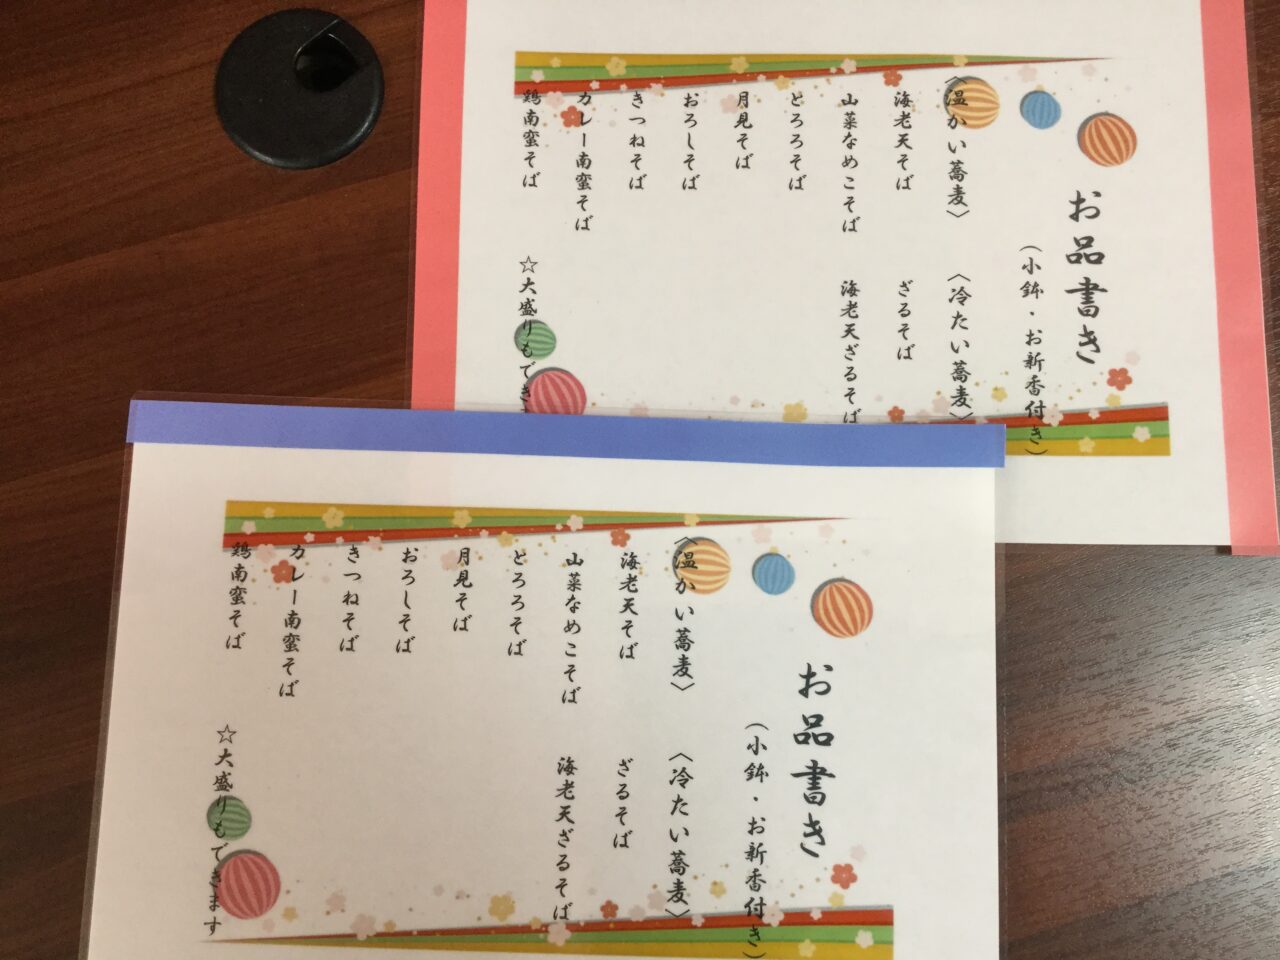 お品書き
(小鉢・お新香付き)
〈温かい蕎麦〉
海老天そば
山菜なめこそば
とろろそば
月見そば
おろしそば
きつねそば
カレー南蛮そば
鶏南蛮そば
〈冷たい蕎麦〉
ざるそば
海老天ざるそば
☆大盛りもできま
お品書き
(小鉢・お新香付き)
〈温かい蕎麦〉
海老天そば
山菜なめこそば
とろろそば
月見そば
おろしそば
きつねそば
カレー南蛮そば
鶏南蛮そば
〈冷たい蕎麦〉
ざるそば
海老天ざるそば
☆大盛りもできます